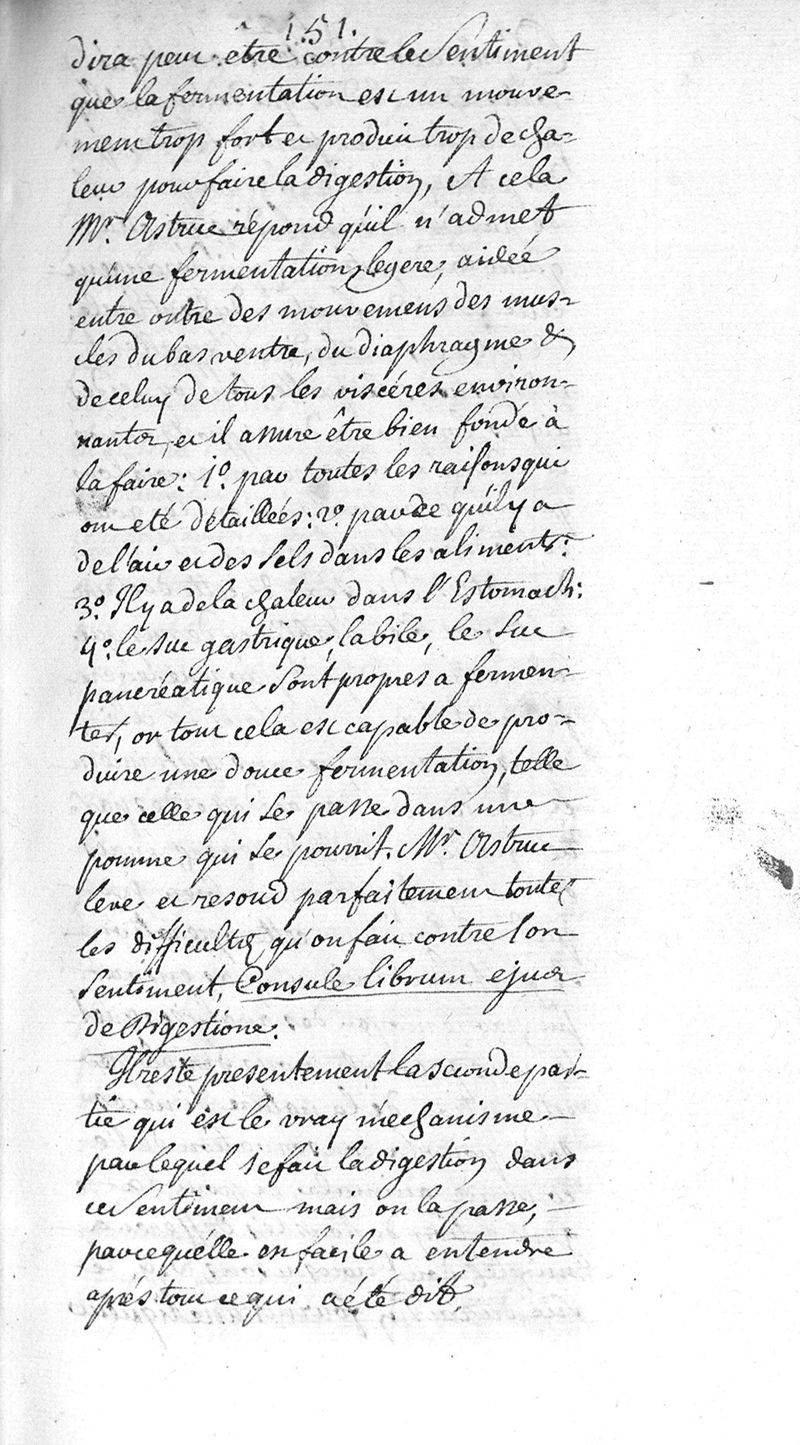 151.
dira peut être contre le sentiment
que la fermentation est un mouve-
ment trop fort et produit trop de cha-
leur pour faire la digestion, A cela
Mr. Astruc répond qu'il n'admet
qu'une fermentation legere, aidée
entre outre des mouvemens des mus-
cles du bas ventre, du diaphragme &
de celuy de tous les viscéres environ-
nants, et il assure être bien fondé à
la faire: 1o. par toutes les raisons qui
ont eté détaillées: 2o. parce qu'il y a
de l'air et des sels dans les aliments:
3o. Il y a de la chaleur dans l'Estomach:
4o. le suc gastrique, la bile, le suc
pancréatique sont propres a fermen-
ter, or tout cela est capable de pro-
duire une douce fermentation, telle
que celle qui se passe dans une
pomme qui se pourrit. Mr. Astruc
leve et resoud parfaitement toutes
les difficultés qu'on fait contre son
sentiment, Consule librum ejus
de Digestione.
Il reste presentement la seconde par-
tie qui est le vray méchanisme
par lequel se fait la digestion dans
ce sentiment mais on la passe,
parce qu'elle est facile a entendre
aprés tout ce qui a été dit.